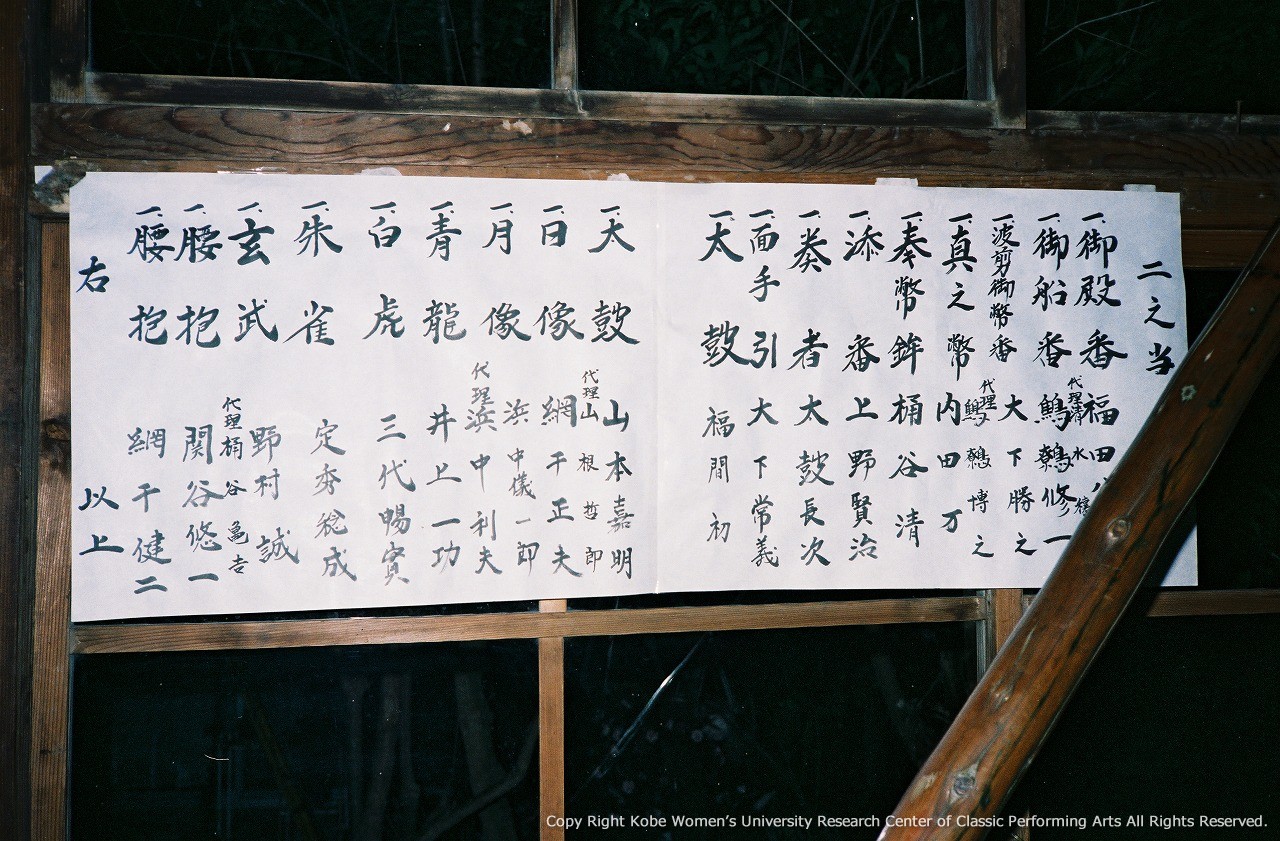 二之当
一、御殿番 福田
一、御船番 鷦鷯修一
代理 清水
一、波剪御幣番 大下勝之
一、真之幣 内田万
代理 鷦鷯博之
一、奉幣鉾 桶谷清
一、添番 上野賢治
一、奏者 太鼓長次
一、面手引 大下常義
一、太鼓 福間初
一、太鼓 山本嘉明
一、日像 網干正夫
代理 山根哲郎
一、月像 浜中儀一郎
代理 浜中利夫
一、青龍 井上一功
一、白虎 三代暢實
一、朱雀 定秀稔成
一、玄武 野村誠
一、腰抱 関谷悠一
代理 桶谷亀吉
一、腰抱 網干健二
右
以上
Copy Right Kobe Women's University Research Center of Classic Performing Arts All Rights Reserved.